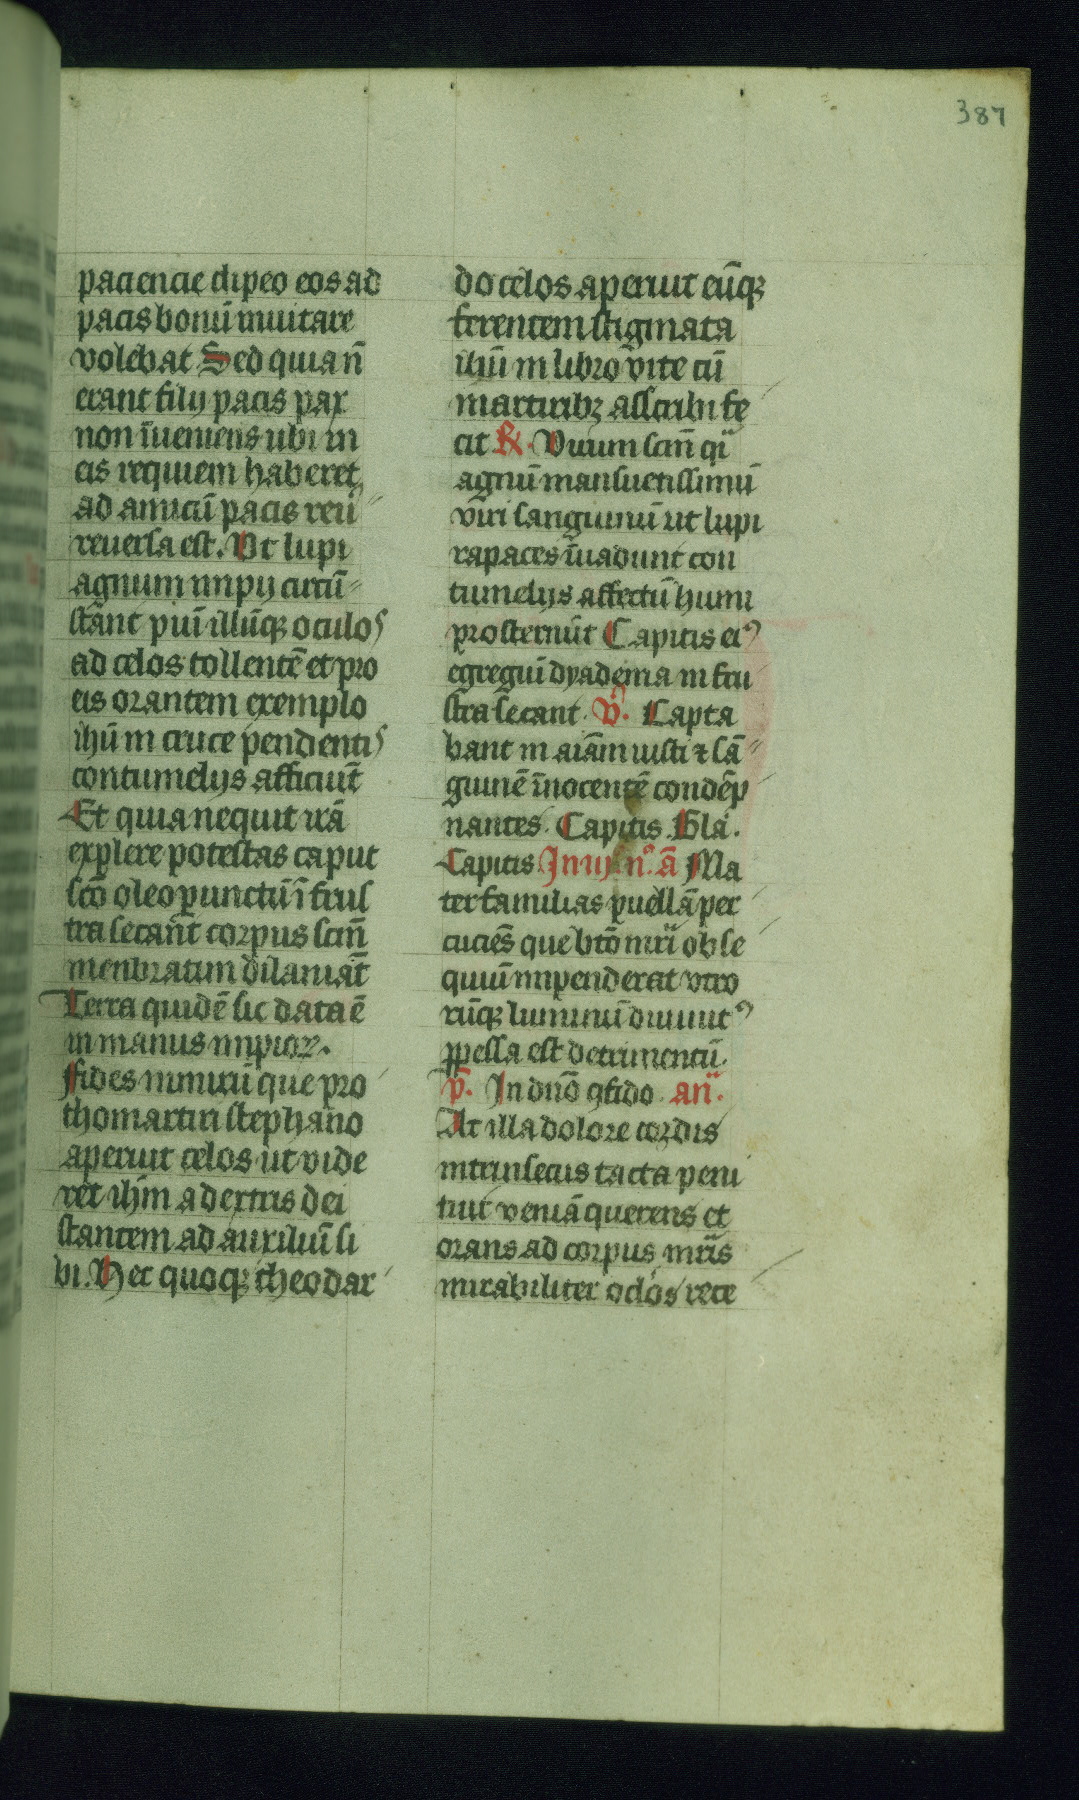 387
paciencie clipeo eos ad
pacis bonū inuitare
volebat Sed quia n̄
erant filij pacis pax
non īueniens ubi in
eis requiem haberet
ad amicū pacis reū
reuersa est. Vt lupi
agnum impij circū
stant piū illūqꝫ oculos
ad celos tollentē et pro
eis orantem exemplo
ihū in cruce pendentis
contumelijs afficiūt
Et quia nequit irā
explere potestas caput
sco̅ oleo punctū ī frus
tra secant corpus scm̄
menbratim dilaniāt
Terra quidē sic data ē
in manus impioꝝ.
Fides mirū que pro
thomartiri stephano
aperuit celos ut vide
ret ihm̄ a dextris dei
stantem ad auxiliū si
bi. Hec quoqꝫ theodar
do celos aperuit eūqꝫ
ferentem stigmata
ihū in libro vite cū
martiribꝫ asscribi fe
cit ℟. Virum scm̄ qi
agnū mansuetissimū
viri sanguinū ut lupi
rapaces īuadunt con
tumelijs affectū humi
prosternūt Capitis eiꝰ
egregiū dyadema in fru
stra secant. v̄. Capta
bant in aīam iusti ⁊ sā
guinē īnocentē condēp
nantes. Capitis. Gla.
Capitis In ijº nº. ā Ma
ter familias puellā per
cuciēs que bt̄o mr̄i obse
quiū impenderat vtro
rūqꝫ luminū diuiuitꝰ
ꝑpessa est detrimentū.
p̄. In dn̄o ꝯfido. an̄.
At illa dolore cordis
intrinsecus tacta peni
tuit veniā querens et
orans ad corpus mr̄is
mirabiliter oclōs rece